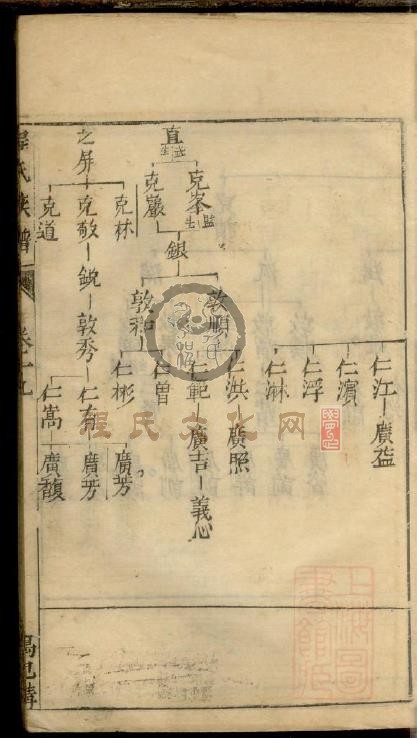 直
克峯 監生
克巖
銀
敦順
敦和
仁江 廣益
仁濵
仁浮
仁淋
仁洪 廣照
仁範 廣吉 義心
仁曾
仁彬
之屏
克林
克敬 銳 敦秀 仁有 廣芳
廣芳
克道
仁嵩 廣馥
氏族譜
卷十九
程氏文化网
上海圖書館藏